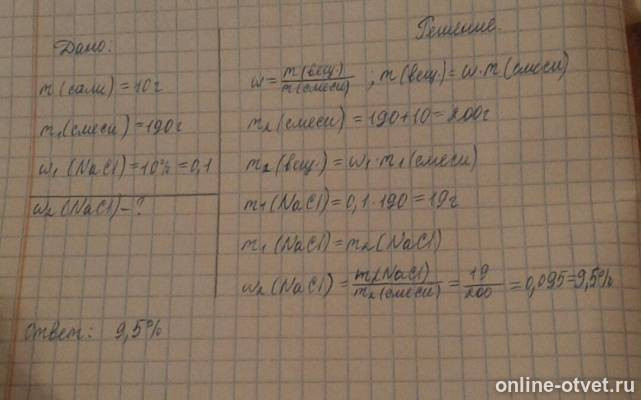 Дано:
m(соли) = 10г
m₁(смеси) = 190г
w₁(NaCl) = 10% = 0,1
w₂(NaCl) - ?
Решение.
w = m(вещ.) / m(смеси), m(вещ.) = w·m(смеси)
m₂(смеси) = 190 + 10 = 200г
m₂(вещ.) = w₁·m₁(смеси)
m₁(NaCl) = 0,1·190 = 19г
m₁(NaCl) = m₂(NaCl)
w₂(NaCl) = m₂(NaCl) / m₂(смеси) = 19 / 200 = 0,095 = 9,5%
Ответ: 9,5%
online-otvet.ru